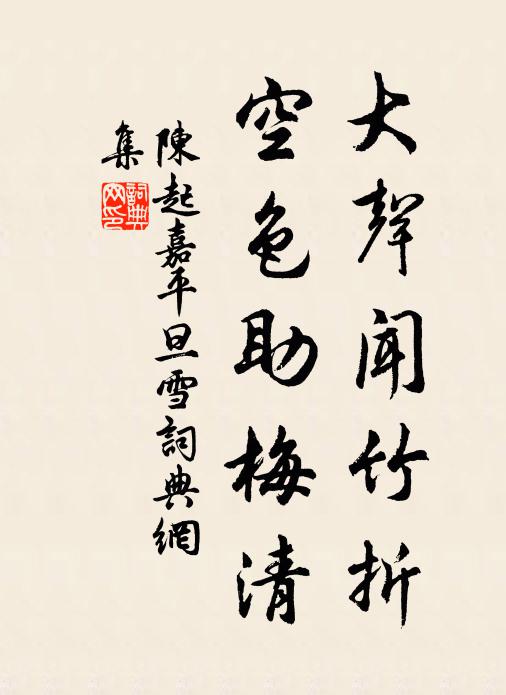 大聲聞竹折
空色助梅清
陳起嘉平旦雪詞典網
集
詞典网印